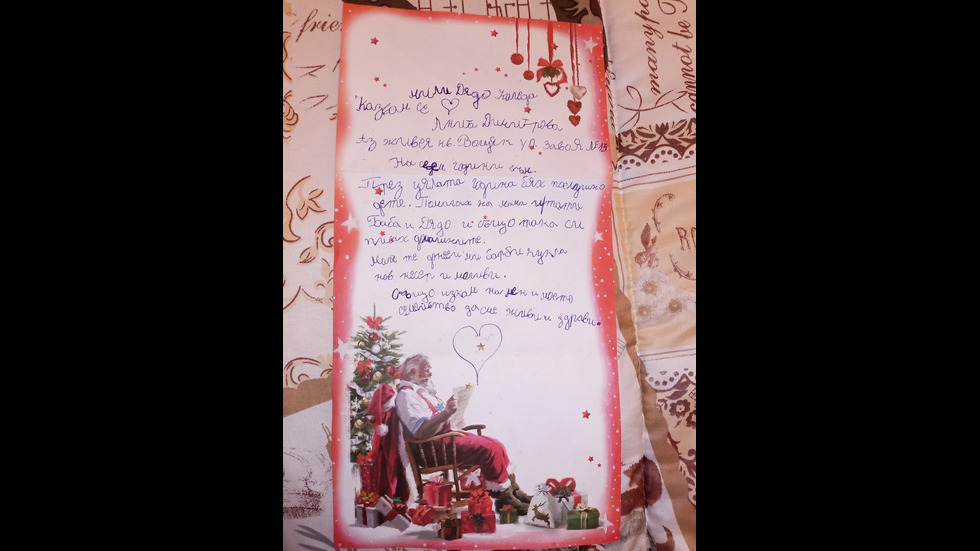 мили Дядо Коледа
Казвам се
Анита Димитрова
Аз живея кв. Воден ул. Завой №13
На седем години съм.
През цялата година бях послушно
дете. Помагах на мама и татко
Баба и Дядо. и също така си
пишах домашните.
Моля те донеси ми барби кукла
нов несер и моливи.
Също искам на мен и моето
семейство да сме живи и здрави.
frie
cannot be